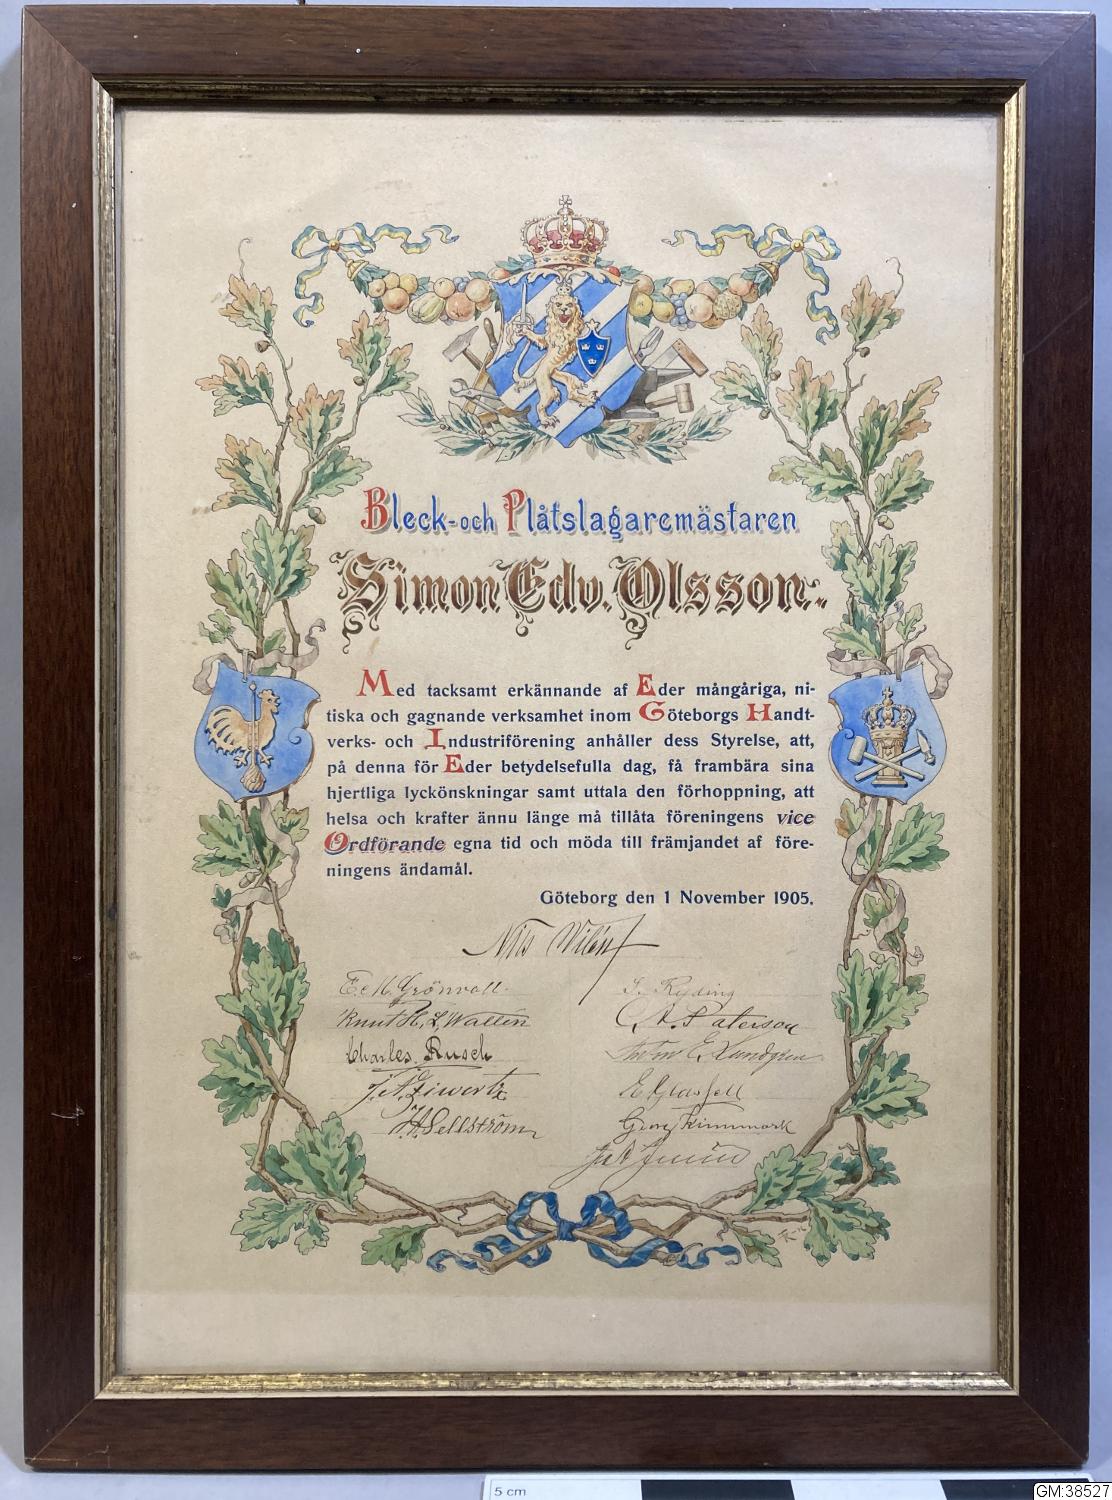 Bleck-och Plåtslagaremästaren
Simon Edv. Olsson.
Med tacksamt erkännande af Eder mångåriga, ni-
tiska och gagnande verksamhet inom Göteborgs Handt-
verks- och Industriförening anhåller dess Styrelse, att,
på denna för Eder betydelsefulla dag, få frambära sina
hjertliga lyckönskningar samt uttala den förhoppning, att
helsa och krafter ännu länge må tillåta föreningens vice
Ordförande egna tid och möda till främjandet af före-
ningens ändamål.
Göteborg den 1 November 1905.
Nils Wilén
Grönvall.
J. Ryding
Knut H. L. Wallin
C. A. Paterson
Charles Rusch
Anton E. Lundgren
J. A. Siwertz
Sellström
Georg Rimmark
5 cm
GM:38527